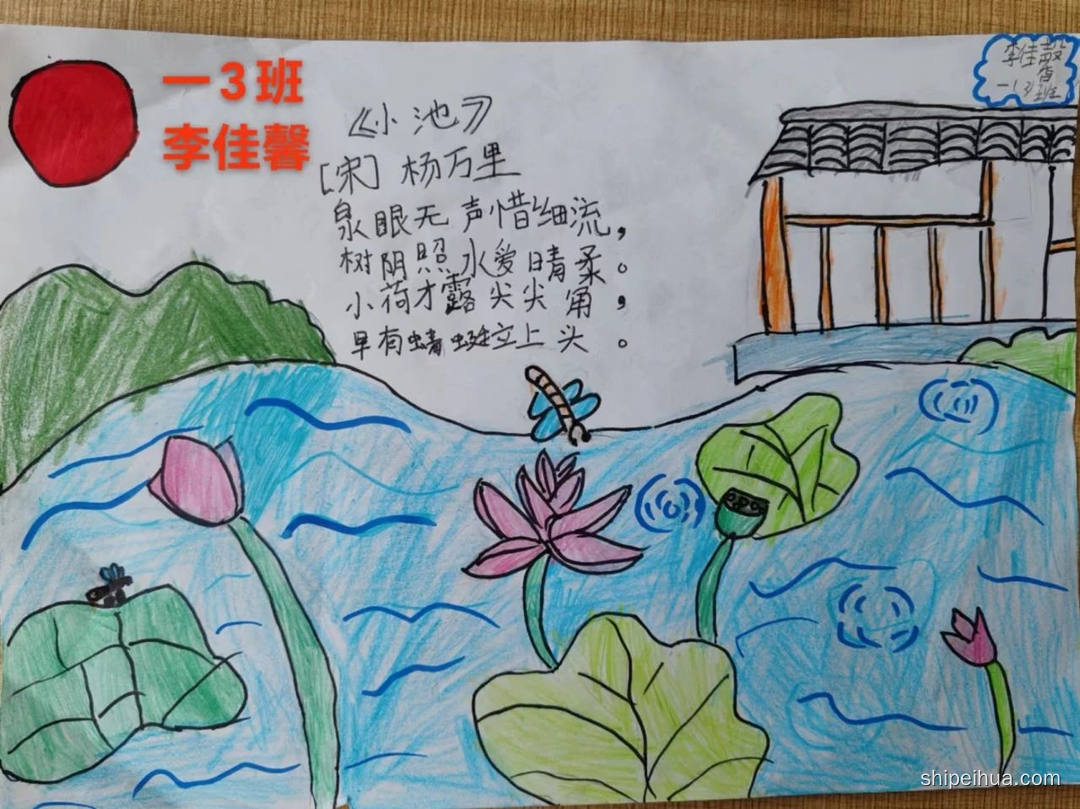 一3班
李佳馨
《小池》
[宋] 杨万里
泉眼无声惜细流，
树阴照水爱晴柔。
小荷才露尖尖角，
早有蜻蜓立上头。
李佳馨
一13班
shipeihua.com